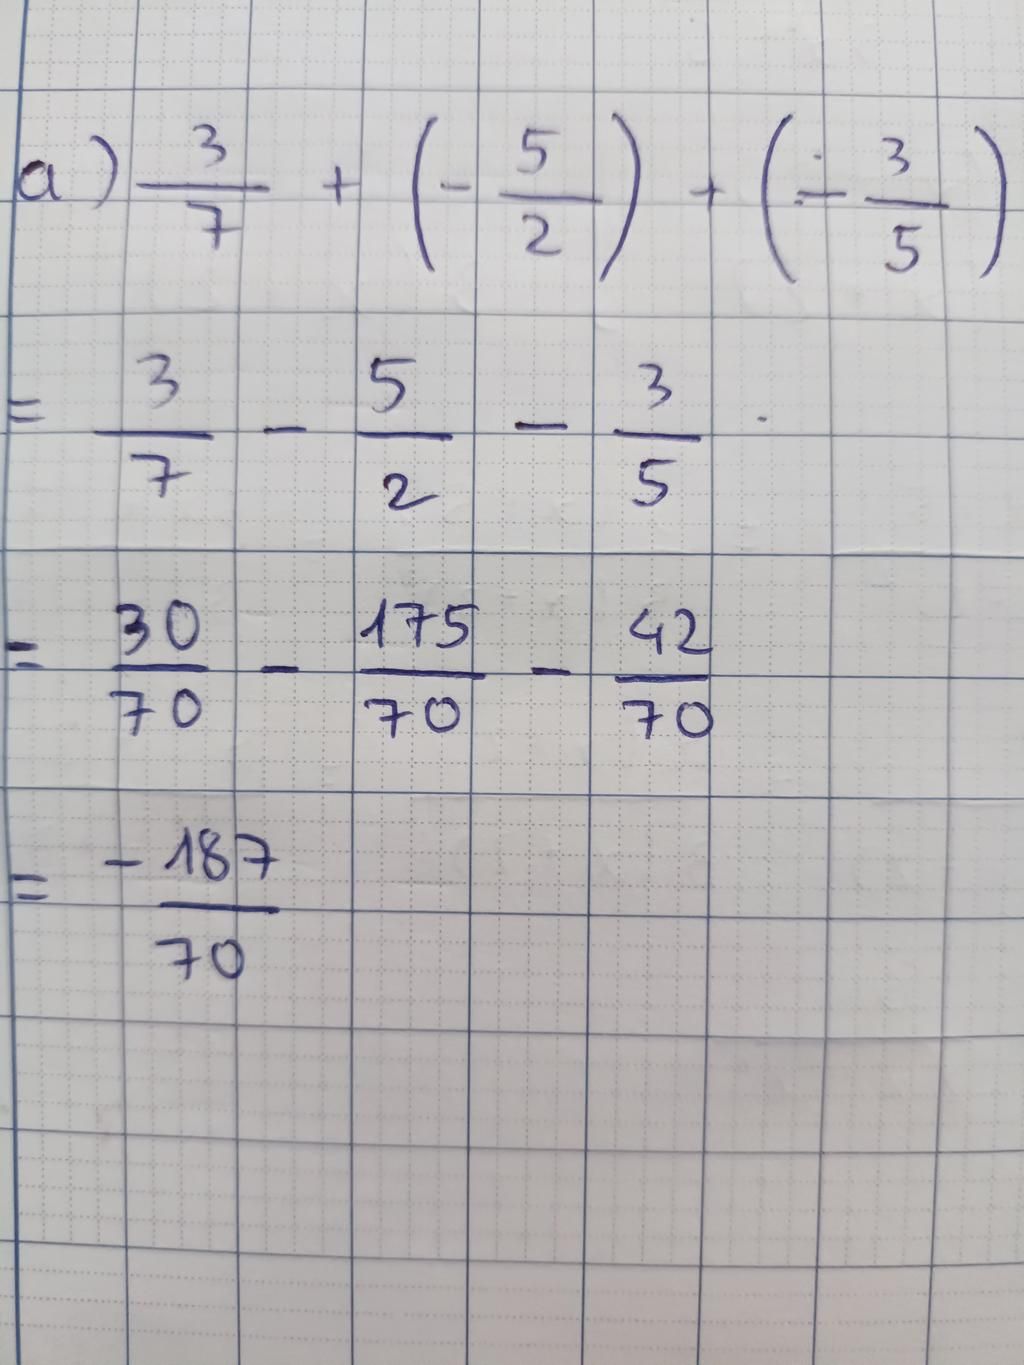 a) 3/7 + (- 5/2) + (- 3/5)
= 3/7 - 5/2 - 3/5
= 30/70 - 175/70 - 42/70
= -187/70